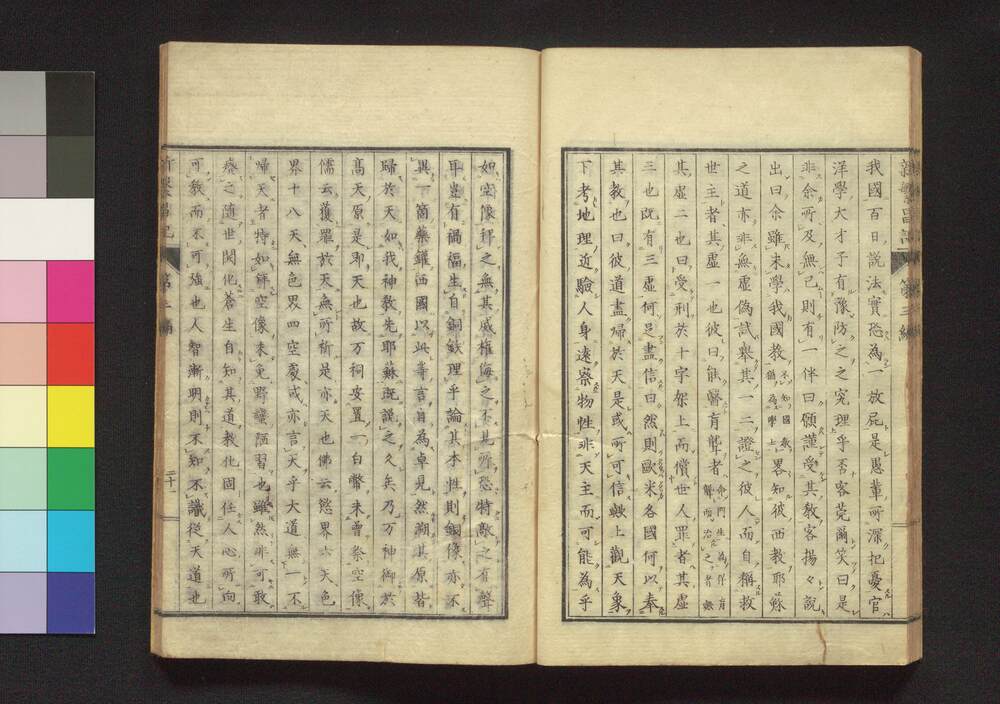 我國百日説法實恐爲一放屁是愚輩所深把憂官
洋學大才子有豫防之之究理乎否客莞爾笑曰是
非余所及無已則有一伴曰願謹受其教客揚々説
出曰余雖未學我國教不知國教猶爲學士畧知彼西教耶蘇
之道亦非無虚偽試擧其一二證之彼人而自稱救
世主者其虚一也彼曰能醫盲聾者
其虚二也曰受刑於十字架上而償世人罪者其虚
三也既有三虚何足盡信曰然則歐米各國何以奉
其教也曰彼道盡歸於天是或所可信歟上觀天象
下考地理近驗人身遠察物性非天主而可能爲乎
新繁昌記 第三編
如空像釋之無其威権侮之不見所恐特敵之有聲
耳豈有禍福生自銅鉄理乎論其本性則銅像亦不
異下箇藥鑵西國以此等言自爲卓見然溯其原皆
歸於天如我神教先耶蘇既説之久矣乃万神御於
高天原是即天也故万祠安置一白幣未曾祭空像
儒云獲罪於天無所祈是亦天也佛云慾界六天色
界十八天無色界四空爰或亦言天乎大道無一不
歸天者特如拝空像未免野蠻陋習也雖然非可敢
癈之隨世開化蒼生自知其道教化固任人心所向
可教而不可強也人智漸明則不知不識從天道也
新繁昌記 第三編 二十一